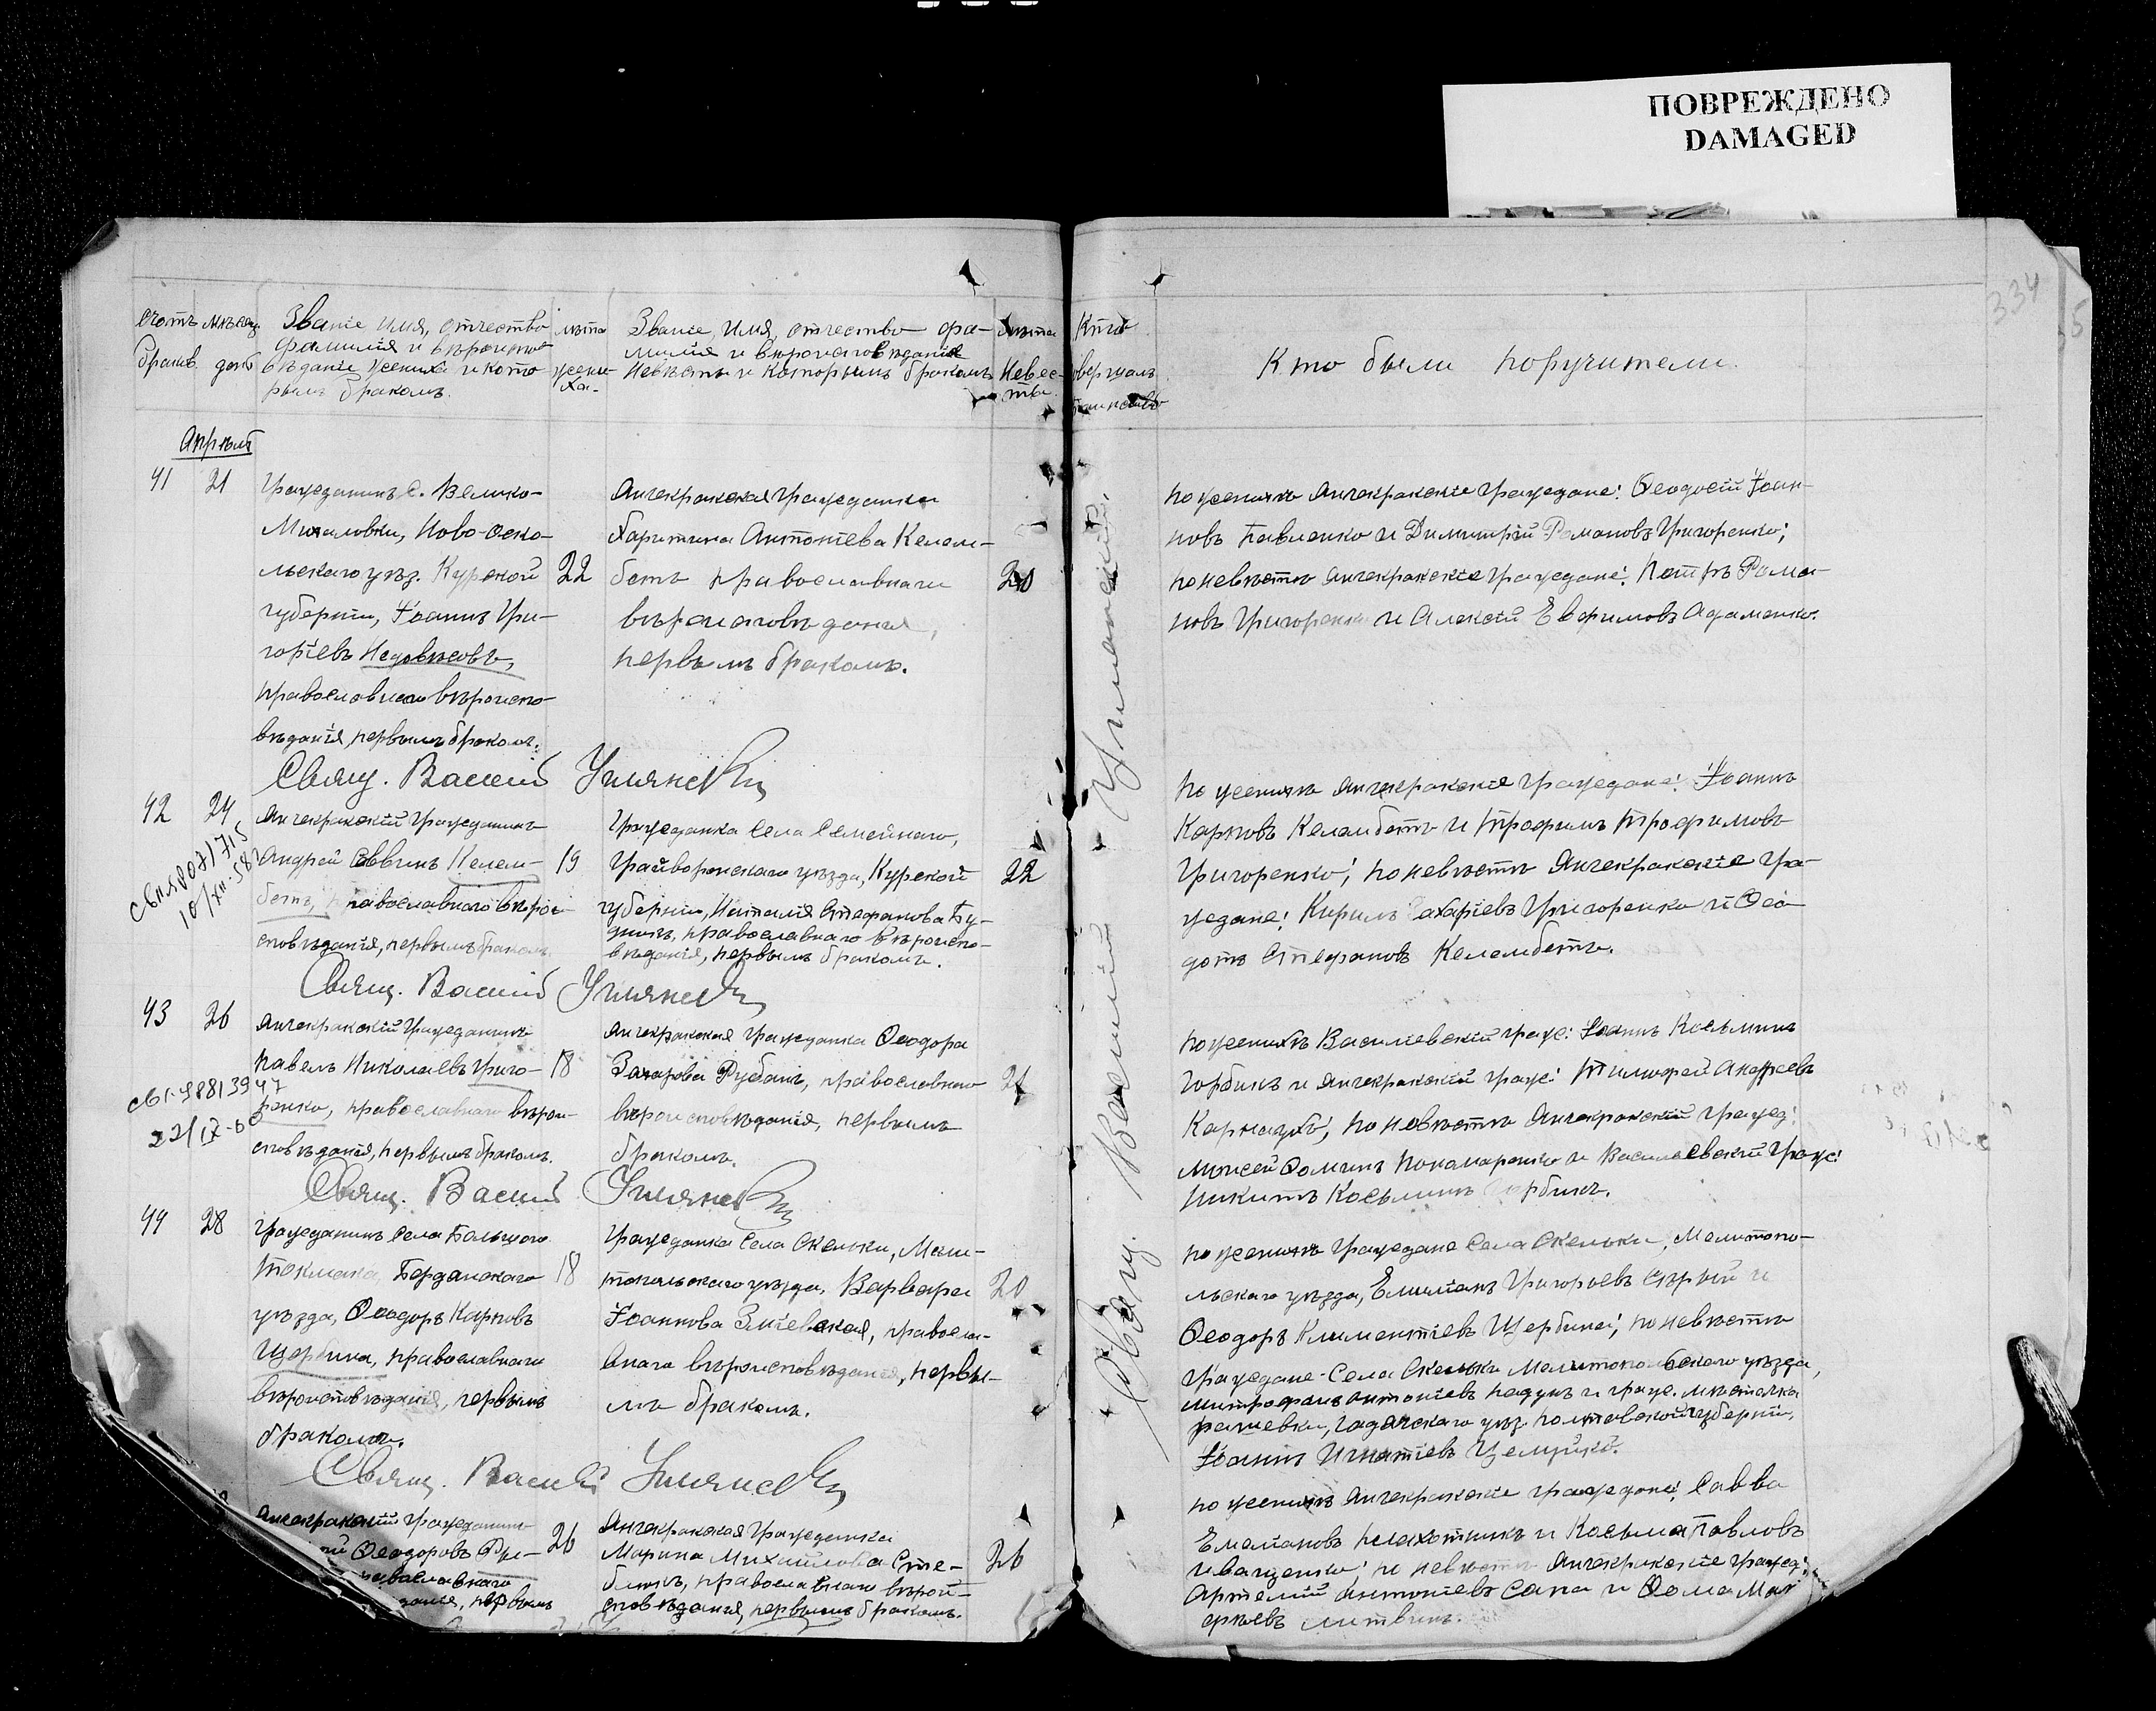 ПОВРЕЖДЕНО
DAMAGED
334
5
Счетъ
браков.
Мѣсяц.
день
Званіе имя, отчество
фамилія и вѣроиспо
вѣданіе жениха и кото
рымъ бракомъ.
лѣта
жени-
ха.
Званіе, имя, отчество фа-
милія и вѣроисповѣданіе
Невѣсты и которымъ бракомъ
лѣта
Невѣс-
ты.
Кто
совершалъ
таинство
Кто были поручители.
Апрѣль
41 21
Гражданинъ с. Велико-
Михаловки, Ново-Оско-
льскаго уѣз. Курской 22
губерніи, Іоаннъ Гри-
горіевъ
православнаго вѣроиспо-
вѣданія, первымъ бракомъ.
Янчекракская гражданка
Харитина Антоніева Келем-
бетъ православнаго 20
вѣроисповѣданія,
первымъ бракомъ.
по женихѣ Янчекракскіе граждане: Ѳеодосій Іоан-
новъ Павленко и Димитрій Романовъ Григоренко;
по невѣстѣ Янчекракскіе граждане: Петръ Рома-
новъ Григоренко и Алексій Евфимовъ Адаменко.
Свящ. Василій Уманскій
42 24
10/XII-58
Янчекракскій гражданинъ
Андрей Саввинъ Келем- 19
бетъ, православнаго вѣрои-
сповѣданія, первымъ бракомъ.
Гражданка села Семейнаго,
Грайворонскаго уѣзда, Курской 22
губерніи, Наталія Стефанова Бу-
православнаго вѣроиспо-
вѣданія, первымъ бракомъ.
по женихѣ Янчекракскіе граждане: Іоаннъ
Карповъ Келембетъ и Трофимъ Трофимовъ
Григоренко; по невѣстѣ Янчекракскіе гра-
ждане: Кирилъ Захаріевъ Григоренко и Ѳео-
дотъ Стефановъ Келембетъ.
Свящ. Василій Уманскій
43 26
22/IX-60
Янчекракскій гражданинъ
Павелъ Николаевъ Григо- 18
ренко, православнаго вѣрои-
сповѣданія, первымъ бракомъ.
Янчекракская гражданка Ѳеодора
Захарова Рубанъ, православнаго 21
вѣроисповѣданія, первымъ
бракомъ.
по женихѣ Василіевскій граж: Іоаннъ Косьминъ
Горбикъ и Янчекракскій граж: Тимофей Андреевъ
Карнаухъ; по невѣстѣ Янчекракскій гражд:
Моисей Ѳоминъ Понамаренко и Василіевскій граж:
Никита Косьминъ Горбикъ.
Свящ. Василій Уманскій
44 28
Гражданинъ села Большого
Токмака, Бердянскаго 18
уѣзда, Ѳеодоръ Карповъ
Щербина, православнаго
вѣроисповѣданія, первымъ
бракомъ.
Гражданка села Скельки, Мели-
топольскаго уѣзда, Варвара 20
Іоаннова Зміевская, правосла-
внаго вѣроисповѣданія, первы-
мъ бракомъ.
по женихѣ граждане села Скельки, Мелитопо-
льскаго уѣзда, Емиліанъ Григорьевъ Сѣрый и
Ѳеодоръ Климентіевъ Щербина; по невѣстѣ
граждане села Скельки Мелитопольскаго уѣзда,
Митрофанъ Антоніевъ Падунъ и граж. мѣстечка
Рашевки, Гадячскаго уѣз. Полтавской губерніи,
Іоаннъ Игнатіевъ
Свящ. Василій Уманскій
Янчекракскій гражданинъ
Ѳеодоровъ 26
православнаго
первымъ
Янчекракская гражданка
Марина Михайлова Сте- 26
православнаго вѣрои-
сповѣданія, первымъ бракомъ.
по женихѣ Янчекракскіе граждане: Савва
Емеліановъ Плахотникъ и Косьма Павловъ
Иващенко; по невѣстѣ Янчекракскіе гражд:
Артемій Антоніевъ Сапа и Ѳома Мат
ѳѣевъ Литвинъ.
Свящ. Василій Уманскій